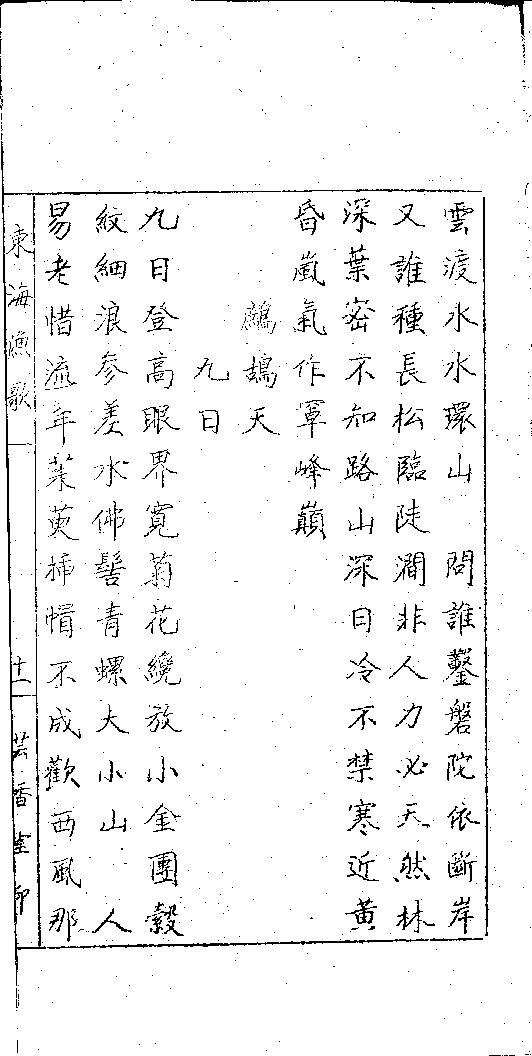 雲渡水水環山　問誰鑿磐陀依斷岸
又誰種長松臨陡澗非人力必天然林
深葉密不知路山深日冷不禁寒近黃
昏嵐氣作罩峰巔
鷓鴣天
九日
九日登高眼界寬菊花纔放小金團縠
紋細浪參差水佛髻青螺大小山　人
易老惜流年茱萸插帽不成歡西風那
東海漁歌　十一　芸香堂鈔